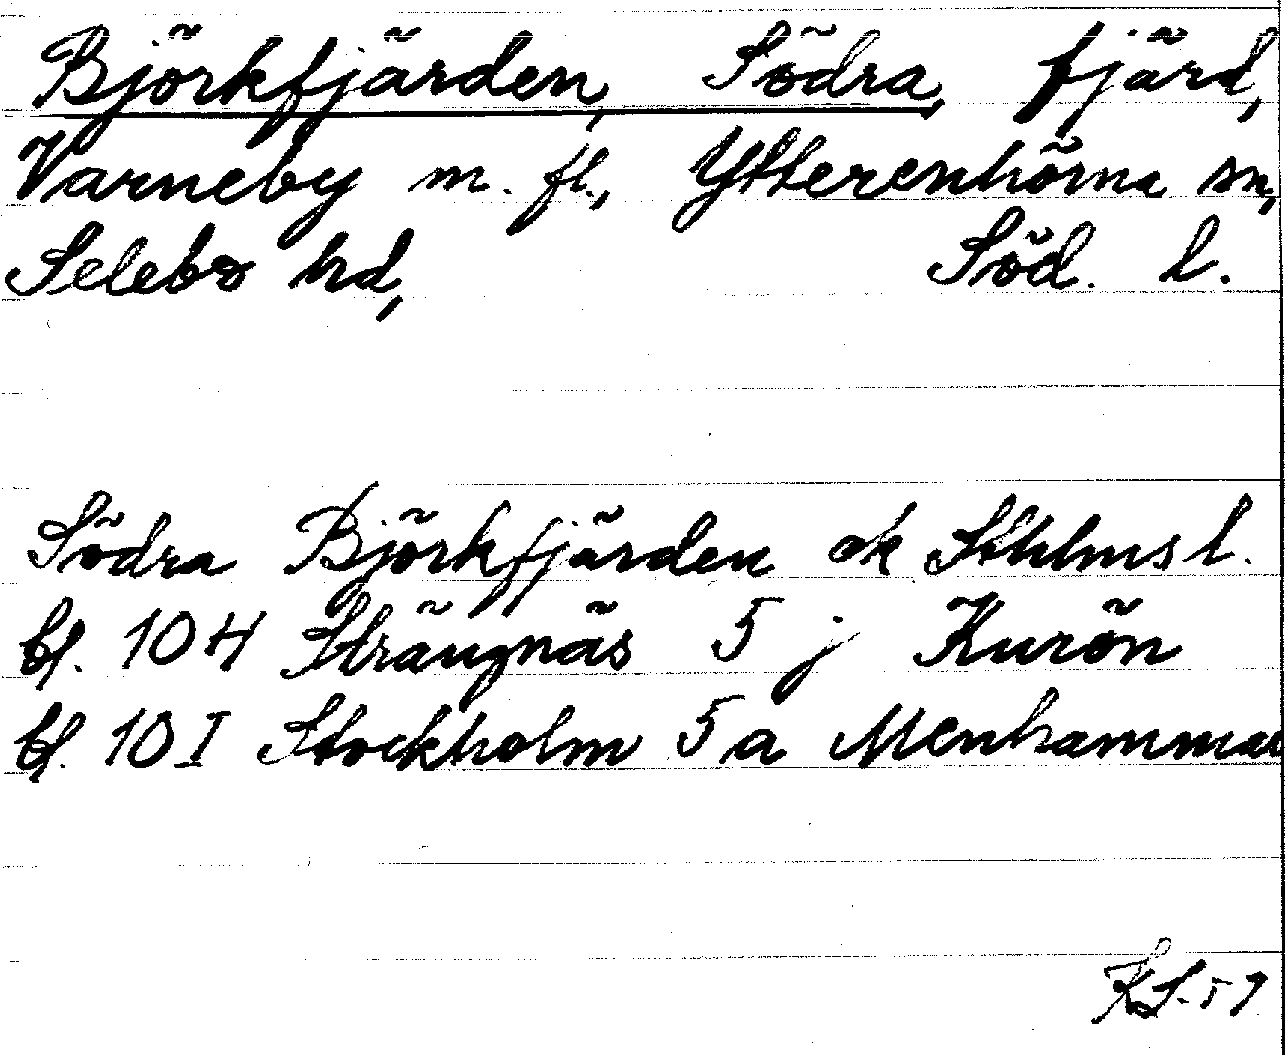 Björkfjärden, Södra, fjärd,
Varneby m. fl., Ytterenhörna sn,
Selebo hd, Söd. l.
Södra Björkfjärden ek Sthlms l.
bl. 10 H Strängnäs 5 j Kurön
bl. 10 I Stockholm 5 a Menhammar